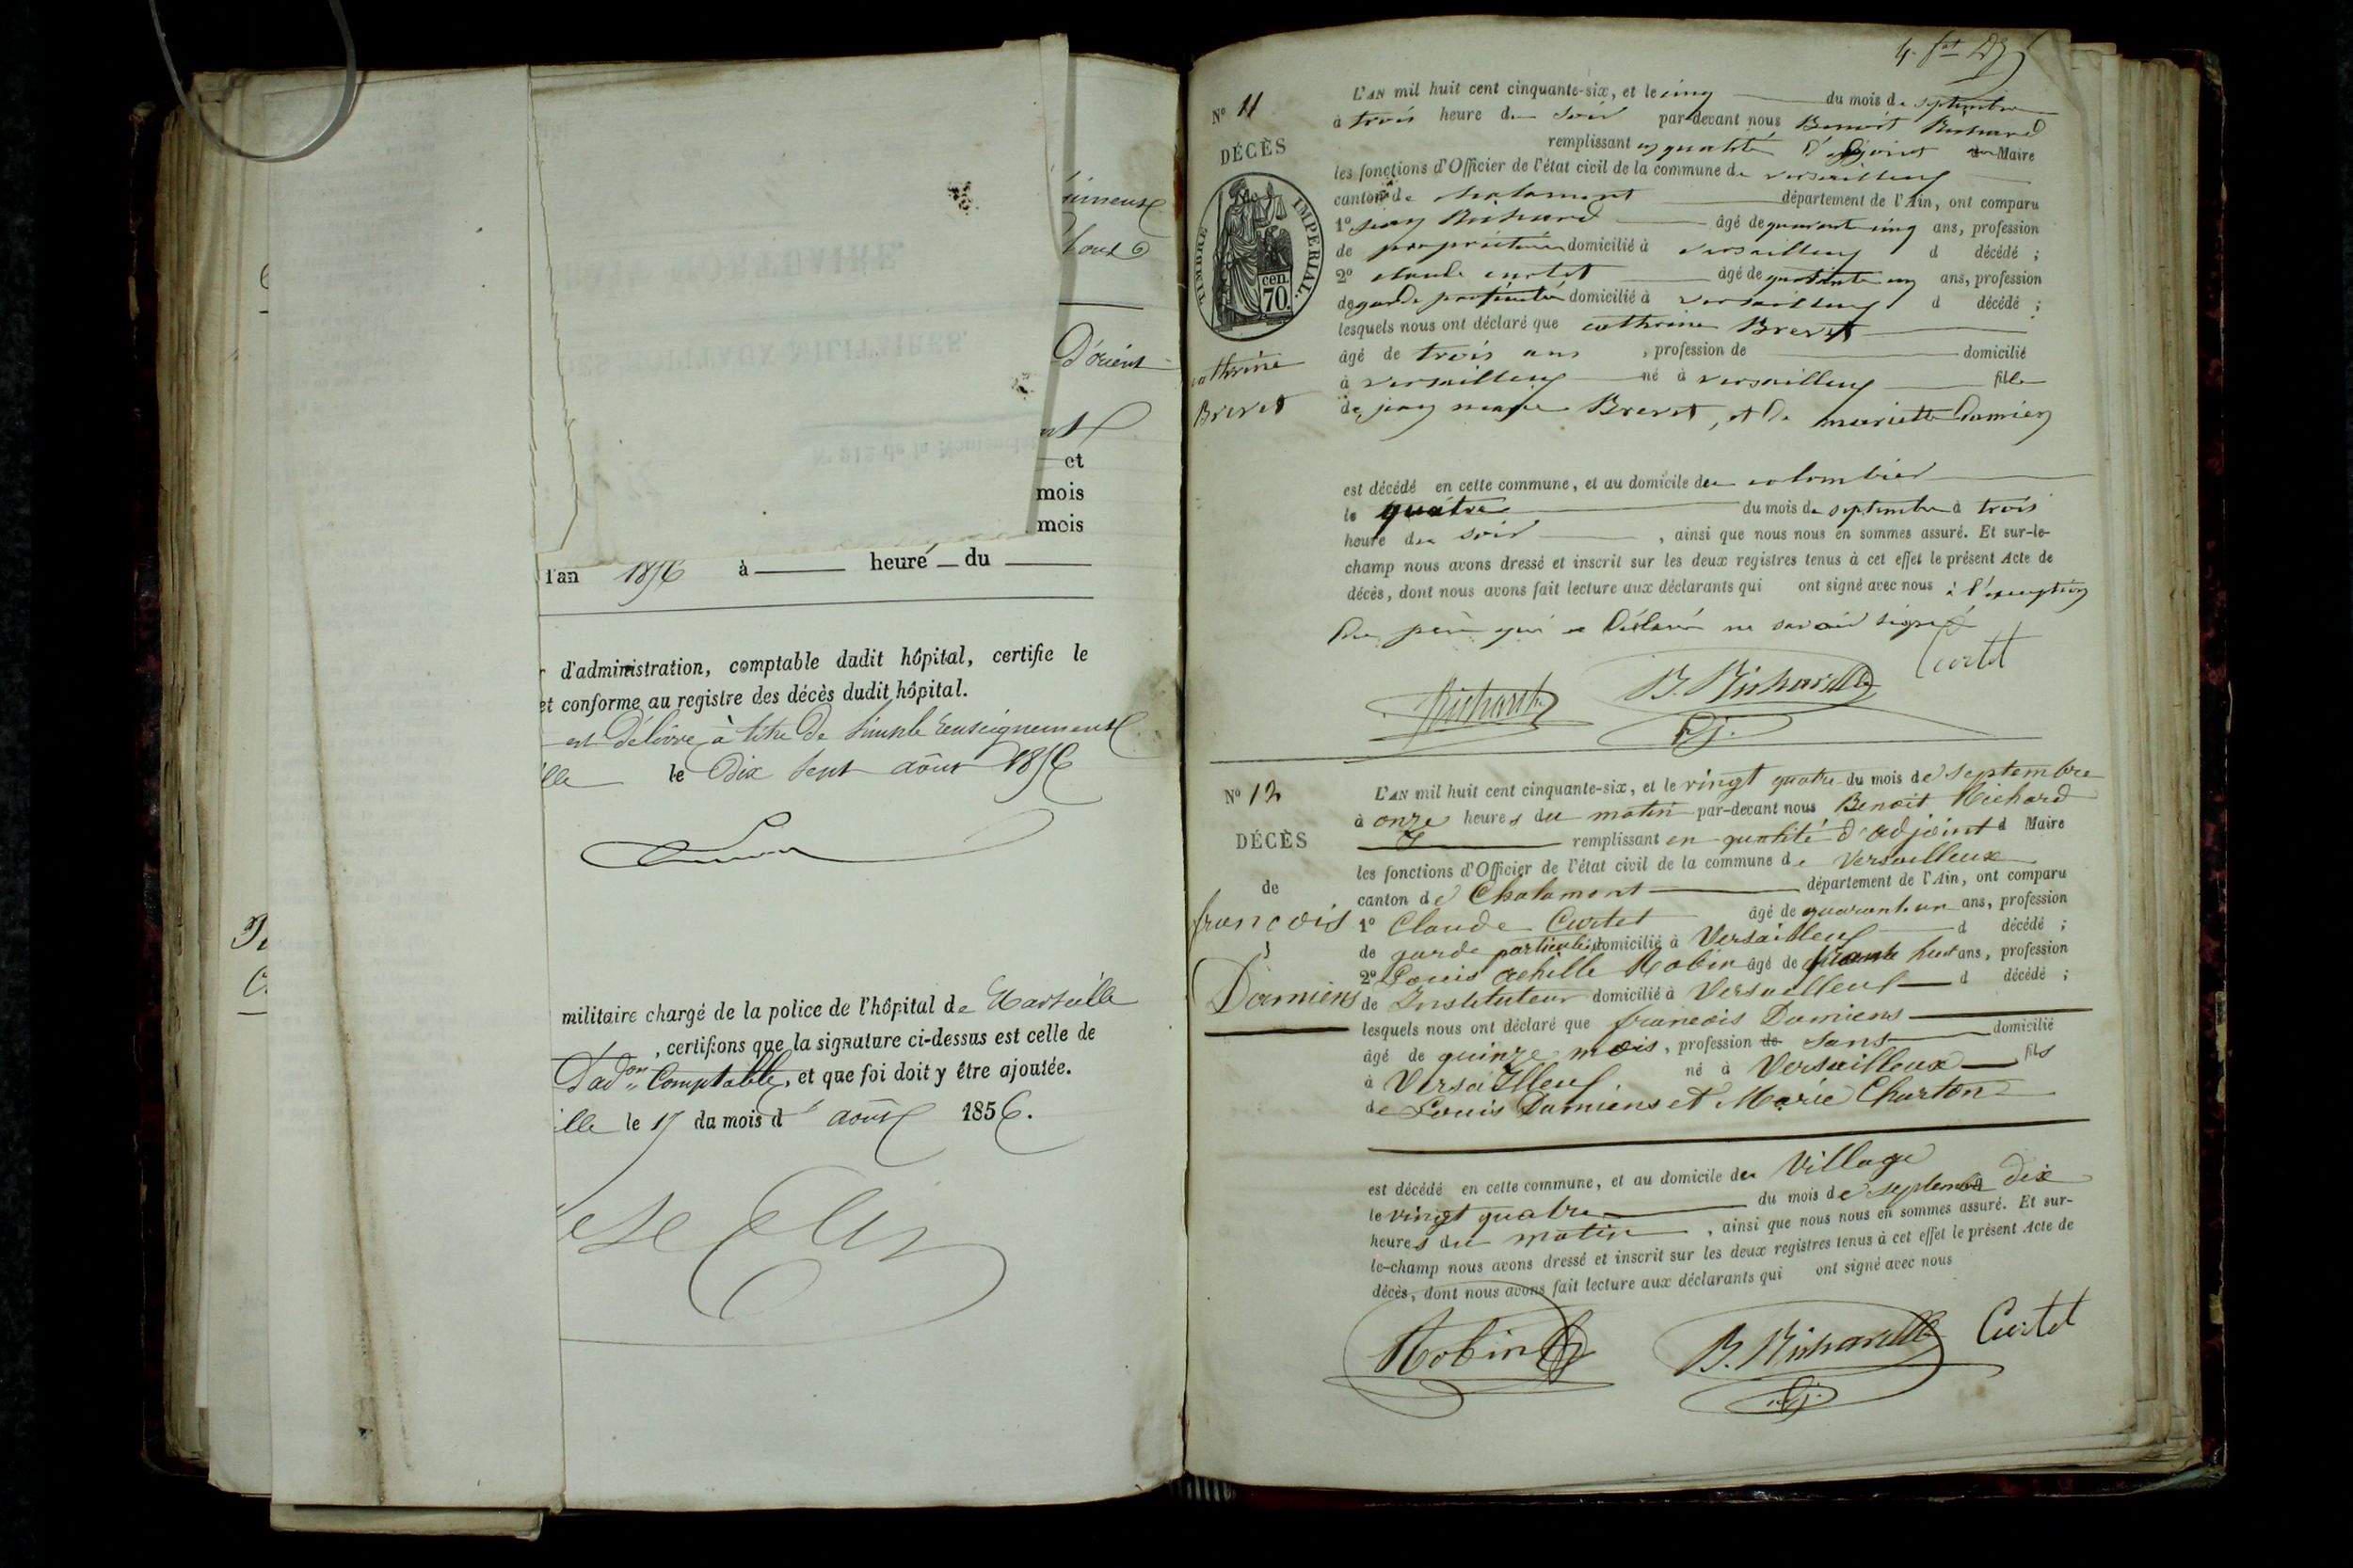 Vous
D'orient
et
mois
mois
l'an 1856 à heure du
d'administration, comptable dudit hôpital, certifie le
et conforme au registre des décès dudit hôpital.
est délivré à titre de simple renseignement
lle le Dix Sept août 1856
militaire chargé de la police de l'hôpital de Marseille
, certifions que la signature ci-dessus est celle de
D'adon Comptable, et que foi doit y être ajoutée.
lle le 17 du mois d' août 1856.
N° 11
DÉCÈS
TIMBRE IMPERIAL.
70 cen.
cathrine
Brevet
L'AN mil huit cent cinquante-six, et le cinq du mois de septembre
à trois heure du soir par-devant nous Benoit Richard
remplissant en qualité d'adjoint au Maire
les fonctions d'Officier de l'état civil de la commune de versailleux
canton de chalamont département de l'Ain, ont comparu
1° jean Richard âgé de quarante cinq ans, profession
de propriétaire domicilié à versailleux d décédé ;
2° claude curtet âgé de quarante un ans, profession
de garde particulier domicilié à versailleux d décédé ;
lesquels nous ont déclaré que cathrine Brevet
âgé de trois ans , profession de domicilié
à versailleux né à versailleux fille
de jean marie Brevet, et de mariette Damien
est décédé en cette commune, et au domicile du colombier
le quatre du mois de septembre à trois
heure du soir , ainsi que nous nous en sommes assuré. Et sur-le-
champ nous avons dressé et inscrit sur les deux registres tenus à cet effet le présent Acte de
décès, dont nous avons fait lecture aux déclarants qui ont signé avec nous à l'exception
du père qui a déclaré ne savoir signé
Curtet
Richard B. Richard
adj.
N° 12
DÉCÈS
de
francois
Damiens
L'AN mil huit cent cinquante-six, et le vingt quatre du mois de septembre
à onze heures du matin par-devant nous Benoit Richard
remplissant en qualité d'adjoint d Maire
les fonctions d'Officier de l'état civil de la commune de Versailleux
canton de Chalamont département de l'Ain, ont comparu
1° Claude Curtet âgé de quarante un ans, profession
de garde particulier domicilié à Versailleux d décédé ;
2° Louis Achille Robin âgé de huit ans, profession
de Instituteur domicilié à Versailleux d décédé ;
lesquels nous ont déclaré que francois Damiens
âgé de quinze mois, profession de sans domicilié
à Versailleux né à Versailleux fils
de Louis Damiens et Marie Charton
est décédé en cette commune, et au domicile du Village
le vingt quatre du mois de septembre dix
heures du matin , ainsi que nous nous en sommes assuré. Et sur-
le-champ nous avons dressé et inscrit sur les deux registres tenus à cet effet le présent Acte de
décès, dont nous avons fait lecture aux déclarants qui ont signé avec nous
Robin B. Richard Curtet
adj.